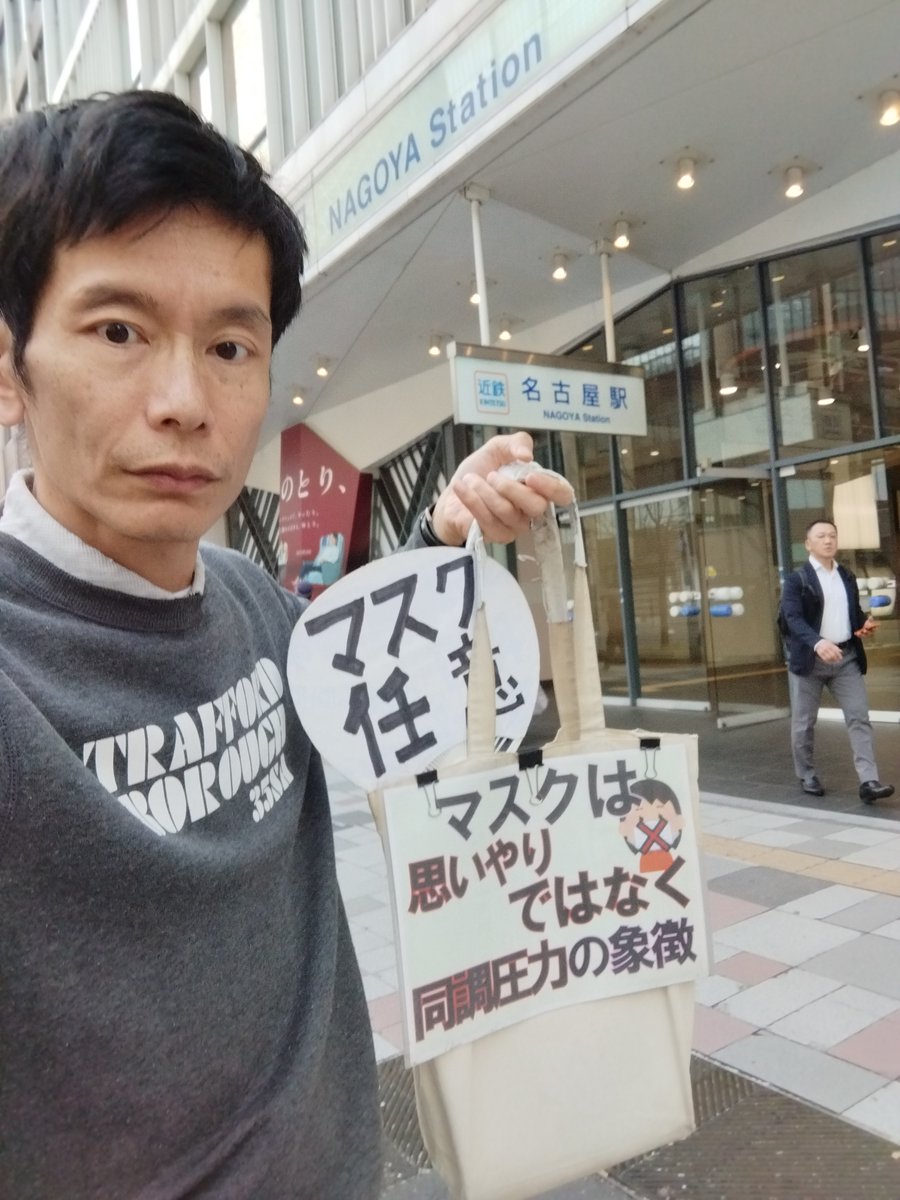 NAGOYA Station
近鉄
KINTETSU
名古屋駅
NAGOYA Station
のとり、
TRAFFORD
BOROUGH
35SA
マスク
任意
マスクは
思いやり
ではなく
同調圧力の象徴